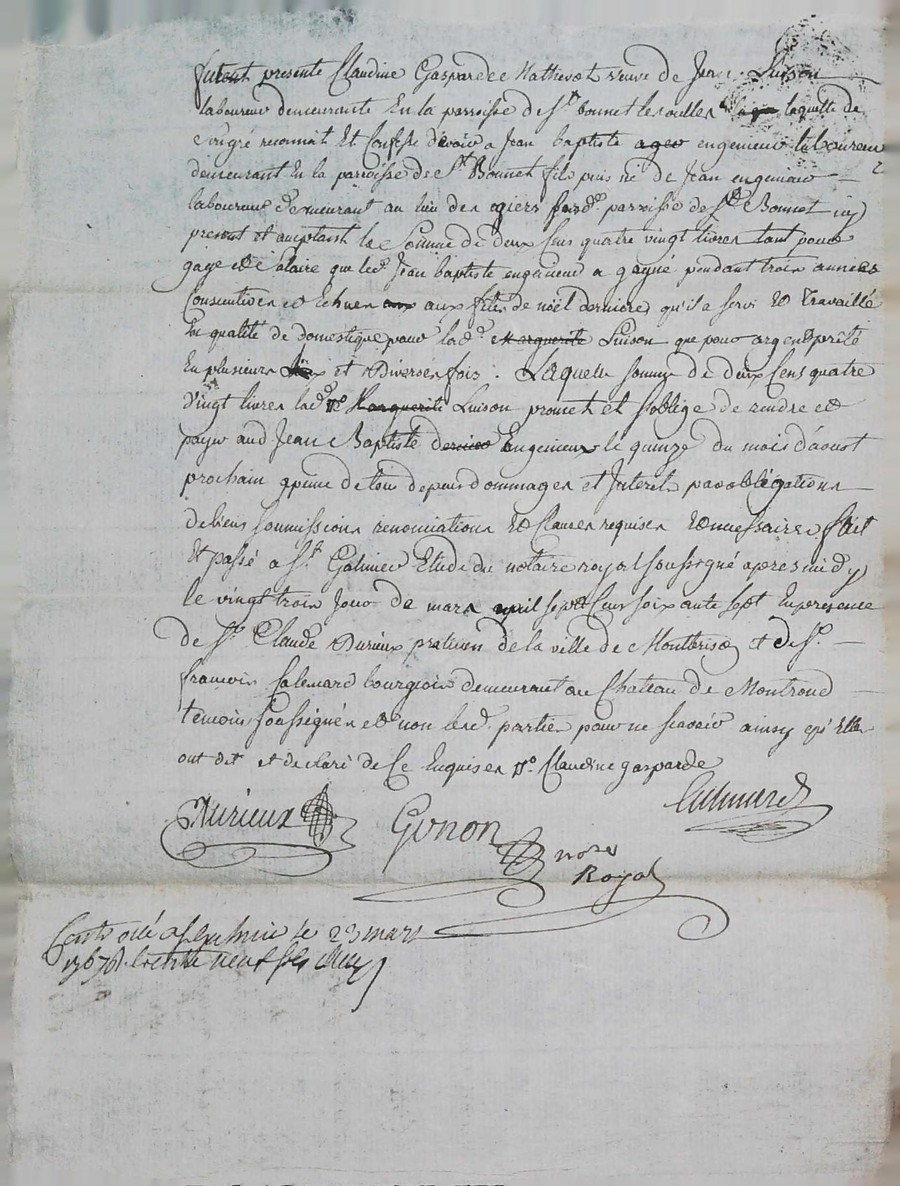 futent presente Claudine Gasparde Mathevot veuve de Jean Luison
laboureur demeurante En la parroisse de St bonnet les oulles laquelle de
son gré reconnait Et Confesse devoir a Jean baptiste engenieux laboureur
demeurant En la paroisse de St Bonnet fils puis né de Jean engenieux
laboureur demeurant au lieu des egiers susde. parroisse de St Bonnet icy
present et aceptant la Somme de deux Cens quatre vingt livres tant pour
gage et Salaire que led. Jean baptiste engenieux a gagné pendant trois années
Consecutives et Echues aux fêtes de noël derniere qu'il a servi et Travaillé
En qualité de domestique pour lade. Marguerite Luison que pour argent prêté
En plusieurs et Diverses fois. Laquelle somme de deux Cens quatre
vingt livres lade. Marguerite Luison promet et s'oblige de rendre et
payer aud Jean Baptiste Engenieux le quinze du mois d'aoust
prochain a peine de tous depens dommages et Interets par obligations
de biens soumissions renonciations et Clauses requises et necessaires fait
Et passé a St. Galmier Etude du notaire royal soussigné apres midy
le vingt trois Jour de mars mil sept Cens soixante sept En presence
de Sr. Claude Durieux praticien de la ville de Montbrison et de Sr.
francois Calemard bourgeois demeurant au Chateau de Montrond
temoins soussignés et non lesd. parties pour ne scavoir ainsy qu'Elles
ont dit et declaré de Ce Enquises Claudine gasparde
Durieux Gonon Calemard
nore
Royal
Controllé a St Galmier le 23 mars
1767 trente neuf sols